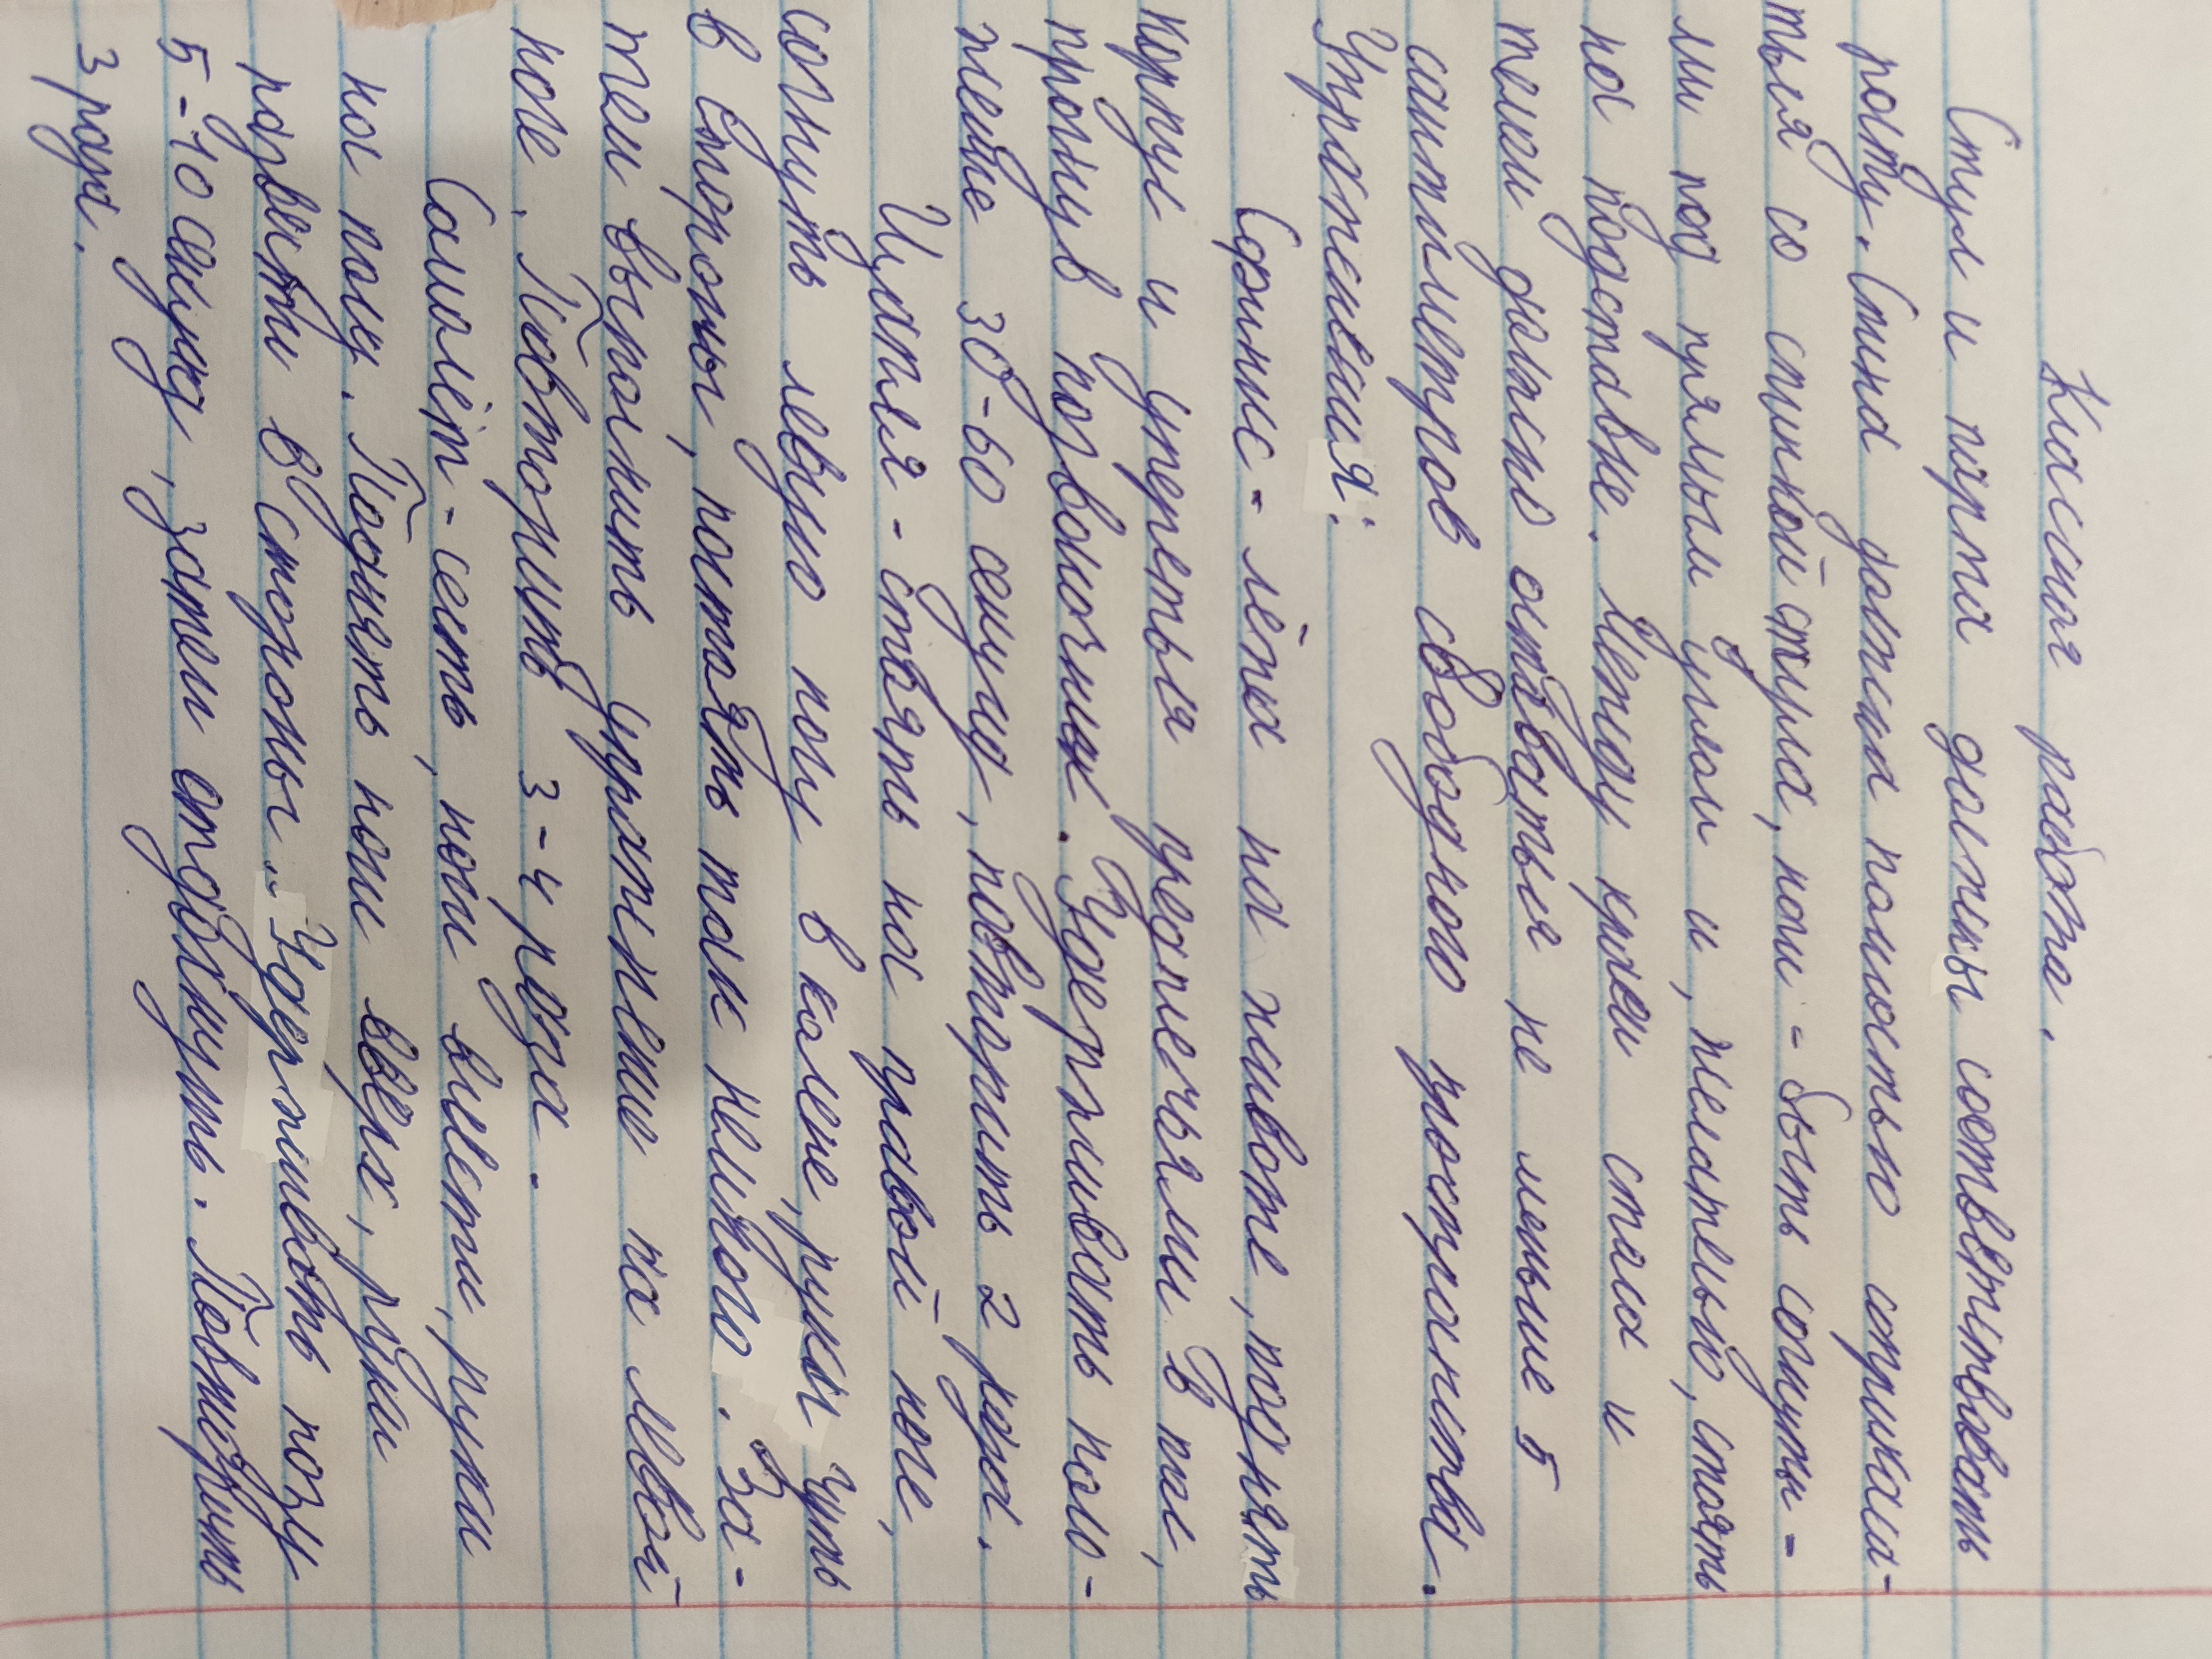 Класная работа.
Стул и парта должны соответствовать
росту. Спина должна полностью соприкаса-
ться со спинкой стула, ноги - быть согнуты-
ми под прямым углом и, желательно, стоять
на подставке. Между краем стола и
телом должно оставаться не меньше 5
сантиметров свободного пространства.
Упражнения:
Сфинкс - лёжа на животе, поднять
корпус и упереться предплечьями в пол,
прогнув позвоночник. Удерживать поло-
жение 30-60 секунд, повторить 2 раза.
Цапля - стоять на правой ноге,
согнуть левую ногу в колене, руки чуть
в стороны, постоять так немного. За-
тем выполнить упражнение на левой
ноге. Повторить 3-4 раза.
Самолёт - сесть, ноги вместе, руки
на полу. Поднять ноги вверх, руки
развести в стороны. Удерживать позу
5-10 секунд, затем отдохнуть. Повторить
3 раза.